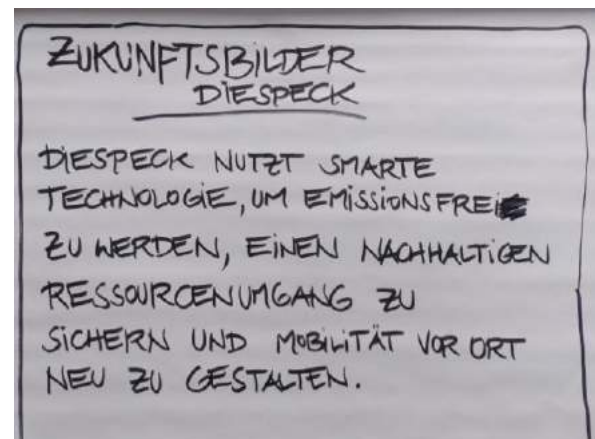 ZUKUNFTSBILDER
DIESPECK
DIESPECK NUTZT SMARTE
TECHNOLOGIE, UM EMISSIONSFREI
ZU WERDEN, EINEN NACHHALTIGEN
RESSOURCENUMGANG ZU
SICHERN UND MOBILITÄT VOR ORT
NEU ZU GESTALTEN.